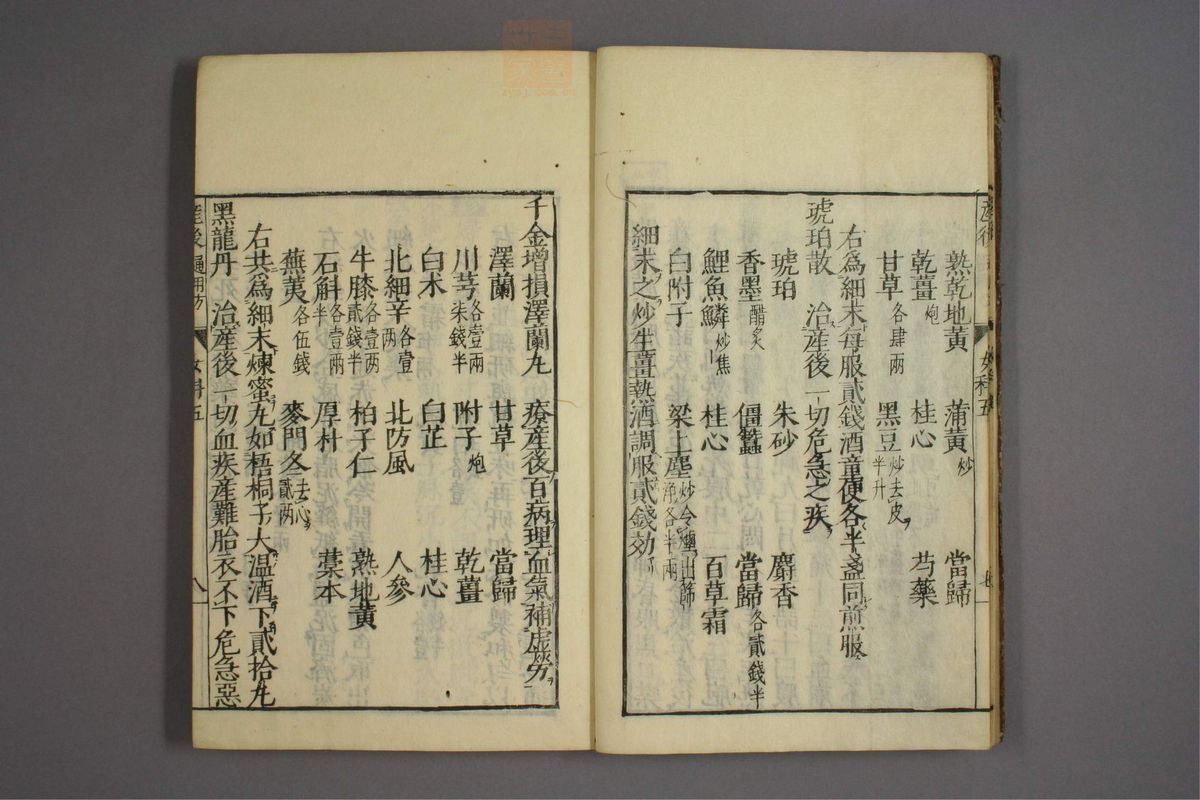 熟乾地黄 蒲黄炒 當歸
乾薑炮 桂心 芍藥
甘草各肆兩 黑豆炒去皮半升
右爲細末每服貳錢酒童便各半盞同煎服
琥珀散 治産後一切危急之疾
琥珀 朱砂 麝香
香墨醋炙 僵蠶 當歸各貳錢半
鯉魚鱗炒焦 桂心 百草霜
白附子 梁上塵炒令煙出篩淨各半兩
細末之炒生薑熱酒調服貳錢効
産後 女科五
千金增損澤蘭丸 療産後百病理血氣補虛勞
澤蘭 甘草 當歸
川芎各壹兩柒錢半 附子炮 乾薑
白术 白芷 桂心
北細辛各壹兩 北防風 人參
牛膝各壹兩貳錢半 柏子仁 熟地黄
石斛各壹兩半 厚朴 藁本
蕪荑各伍錢 麥門冬去心貳兩
右共爲細末煉蜜丸如梧桐子大温酒下貳拾丸
黑龍丹 治産後一切血疾産難胎衣不下危急惡
産後通用方 女科五 八